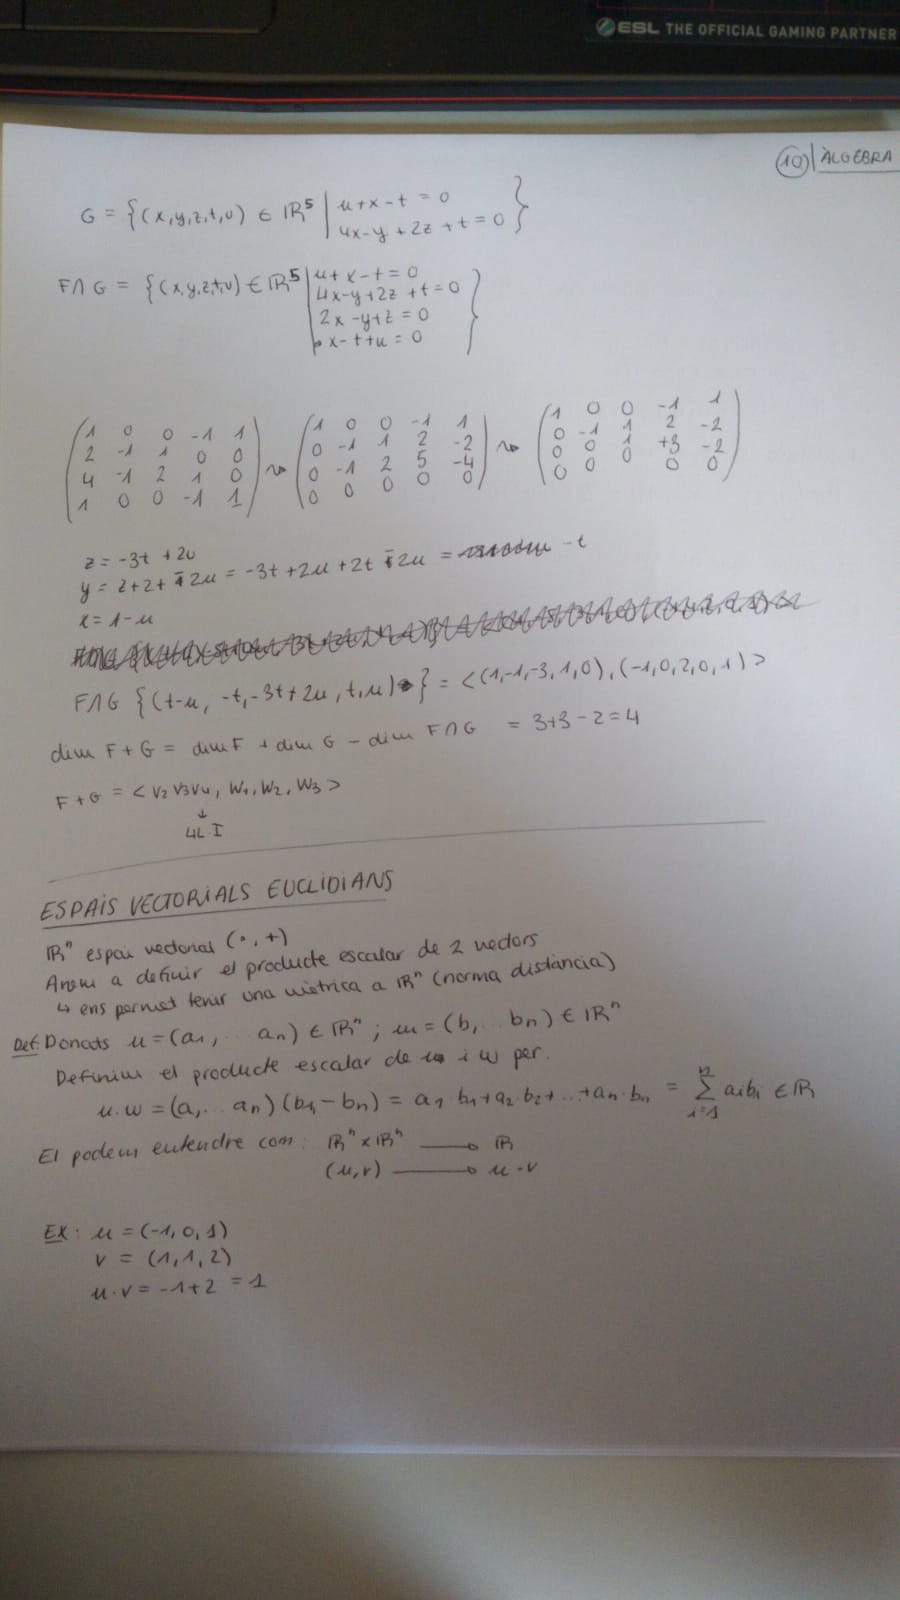 ESL THE OFFICIAL GAMING PARTNER
10 | ÀLGEBRA
G = {(x,y,z,t,u) ∈ ℝ⁵ | u+x-t = 0
4x-y+2z+t=0 }
F∩G = {(x,y,z,t,u) ∈ ℝ⁵ | u+x-t=0
4x-y+2z+t=0
2x-y+z=0
x-t+u=0 }
(1 0 0 -1 1) (1 0 0 -1 1) (1 0 0 -1 1)
(2 -1 1 0 0) (0 -1 1 2 -2) (0 -1 1 2 -2)
(4 -1 2 1 0) ~> (0 -1 2 5 -4) ~> (0 0 1 +3 -2)
(1 0 0 -1 1) (0 0 0 0 0) (0 0 0 0 0)
z = -3t + 2u
y = z+2t-2u = -3t+2u+2t-2u = -t
x = 1-u
F∩G {(t-u, -t, -3t+2u, t, u)} = <(1,-1,-3,1,0), (-1,0,2,0,1)>
dim F+G = dim F + dim G - dim F∩G = 3+3-2=4
F+G = <v₂ v₃ v₄, w₁, w₂, w₃>
↓
4L.I
ESPAIS VECTORIALS EUCLIDIANS
ℝⁿ espai vectorial (·,+)
Anem a definir el producte escalar de 2 vectors
↳ ens permet tenir una mètrica a ℝⁿ (norma distància)
Def: Donats u=(a₁,...aₙ) ∈ ℝⁿ; w=(b,...bₙ) ∈ ℝⁿ
Definim el producte escalar de u i w per.
u·w=(a,...aₙ)(b₁-bₙ) = a₁·b₁+a₂·b₂+...+aₙ·bₙ = Σⁿᵢ₌₁ aᵢbᵢ ∈ ℝ
El podem entendre com: ℝⁿ×ℝⁿ ⟶ ℝ
(u,v) ⟶ u·v
EX: u = (-1,0,1)
v = (1,1,2)
u·v = -1+2 = 1